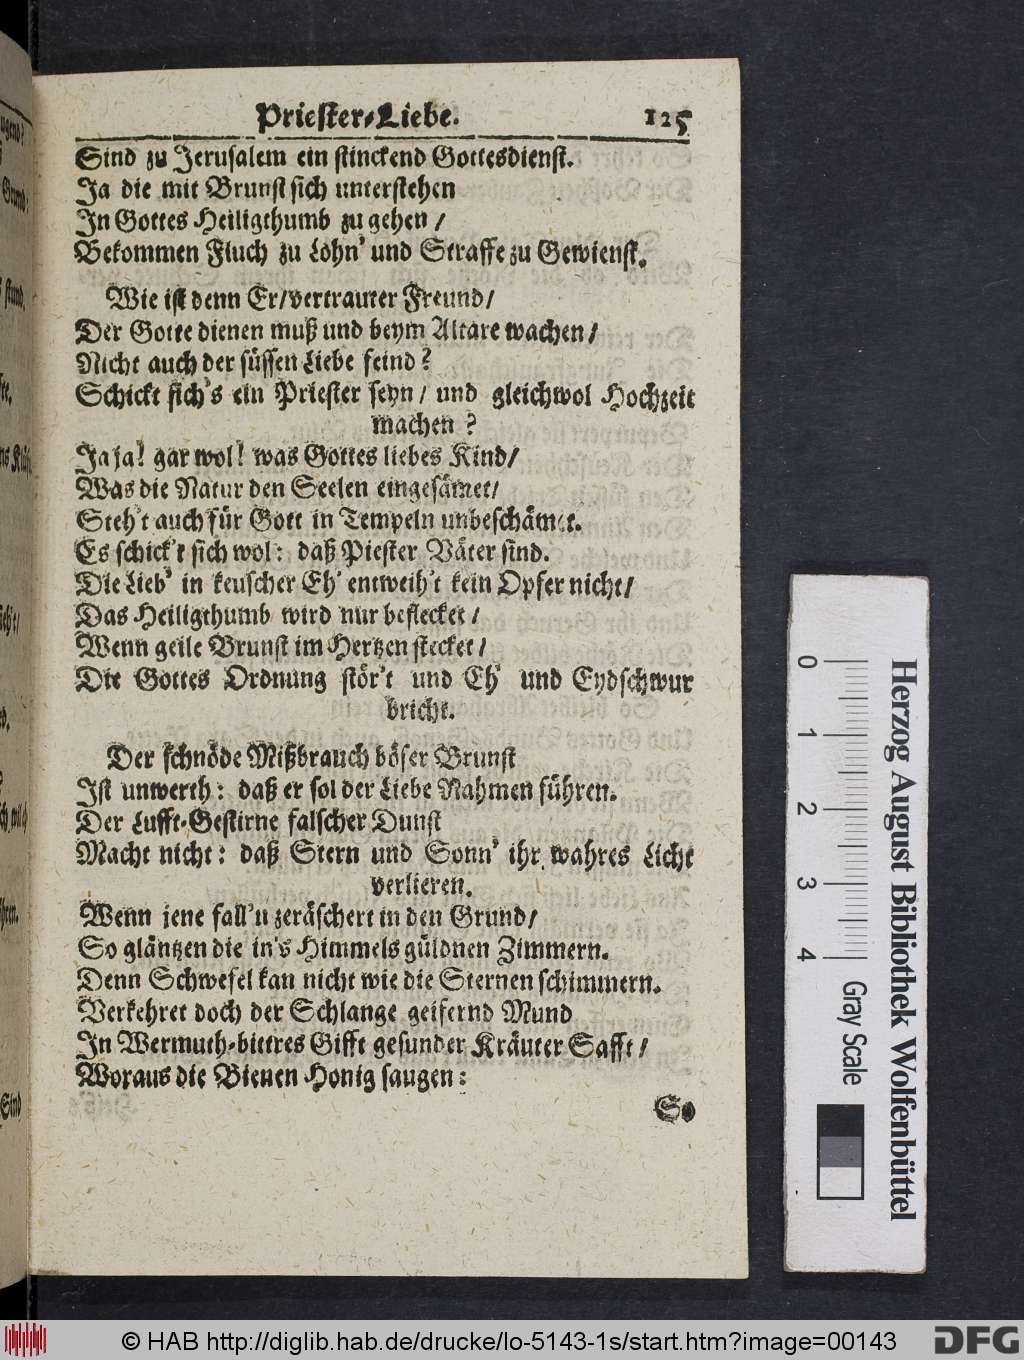 Priester-Liebe. 125
Sind zu Jerusalem ein stinckend Gottesdienst.
Ja die mit Brunst sich unterstehen
In Gottes Heiligthumb zu gehen /
Bekommen Fluch zu Lohn' und Straffe zu Gewienst.
Wie ist denn Er/vertrauter Freund/
Der Gotte dienen muß und beym Altare wachen/
Nicht auch der süssen Liebe feind?
Schickt sich's ein Priester seyn / und gleichwol Hochzeit
machen?
Ja ja! gar wol! was Gottes liebes Kind/
Was die Natur den Seelen eingesämet/
Steh't auch für Gott in Tempeln unbeschämt.
Es schick't sich wol: daß Piester Väter sind.
Die Lieb' in keuscher Eh' entweih't kein Opfer nicht/
Das Heiligthumb wird nur beflecket /
Wenn geile Brunst im Hertzen stecket /
Die Gottes Ordnung stör't und Eh' und Eydschwur
bricht.
Der schnöde Mißbrauch böser Brunst
Ist unwerth: daß er sol der Liebe Nahmen führen.
Der Lufft-Gestirne falscher Dunst
Macht nicht: daß Stern und Sonn' ihr wahres Licht
verlieren.
Wenn jene fall'n zeräschert in den Grund/
So gläntzen die in's Himmels güldnen Zimmern.
Denn Schwefel kan nicht wie die Sternen schimmern.
Verkehret doch der Schlange geifernd Mund
In Wermuth-bittres Gifft gesunder Kräuter Safft /
Woraus die Bienen Honig saugen:
So
0 1 2 3 4
Herzog August Bibliothek Wolfenbüttel
Gray Scale
© HAB http://diglib.hab.de/drucke/lo-5143-1s/start.htm?image=00143
DFG